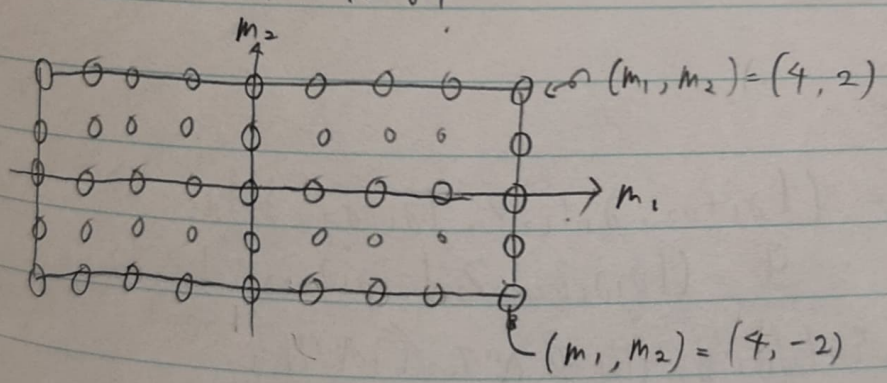 m₂
(m₁, m₂) = (4, 2)
m₁
(m₁, m₂) = (4, -2)